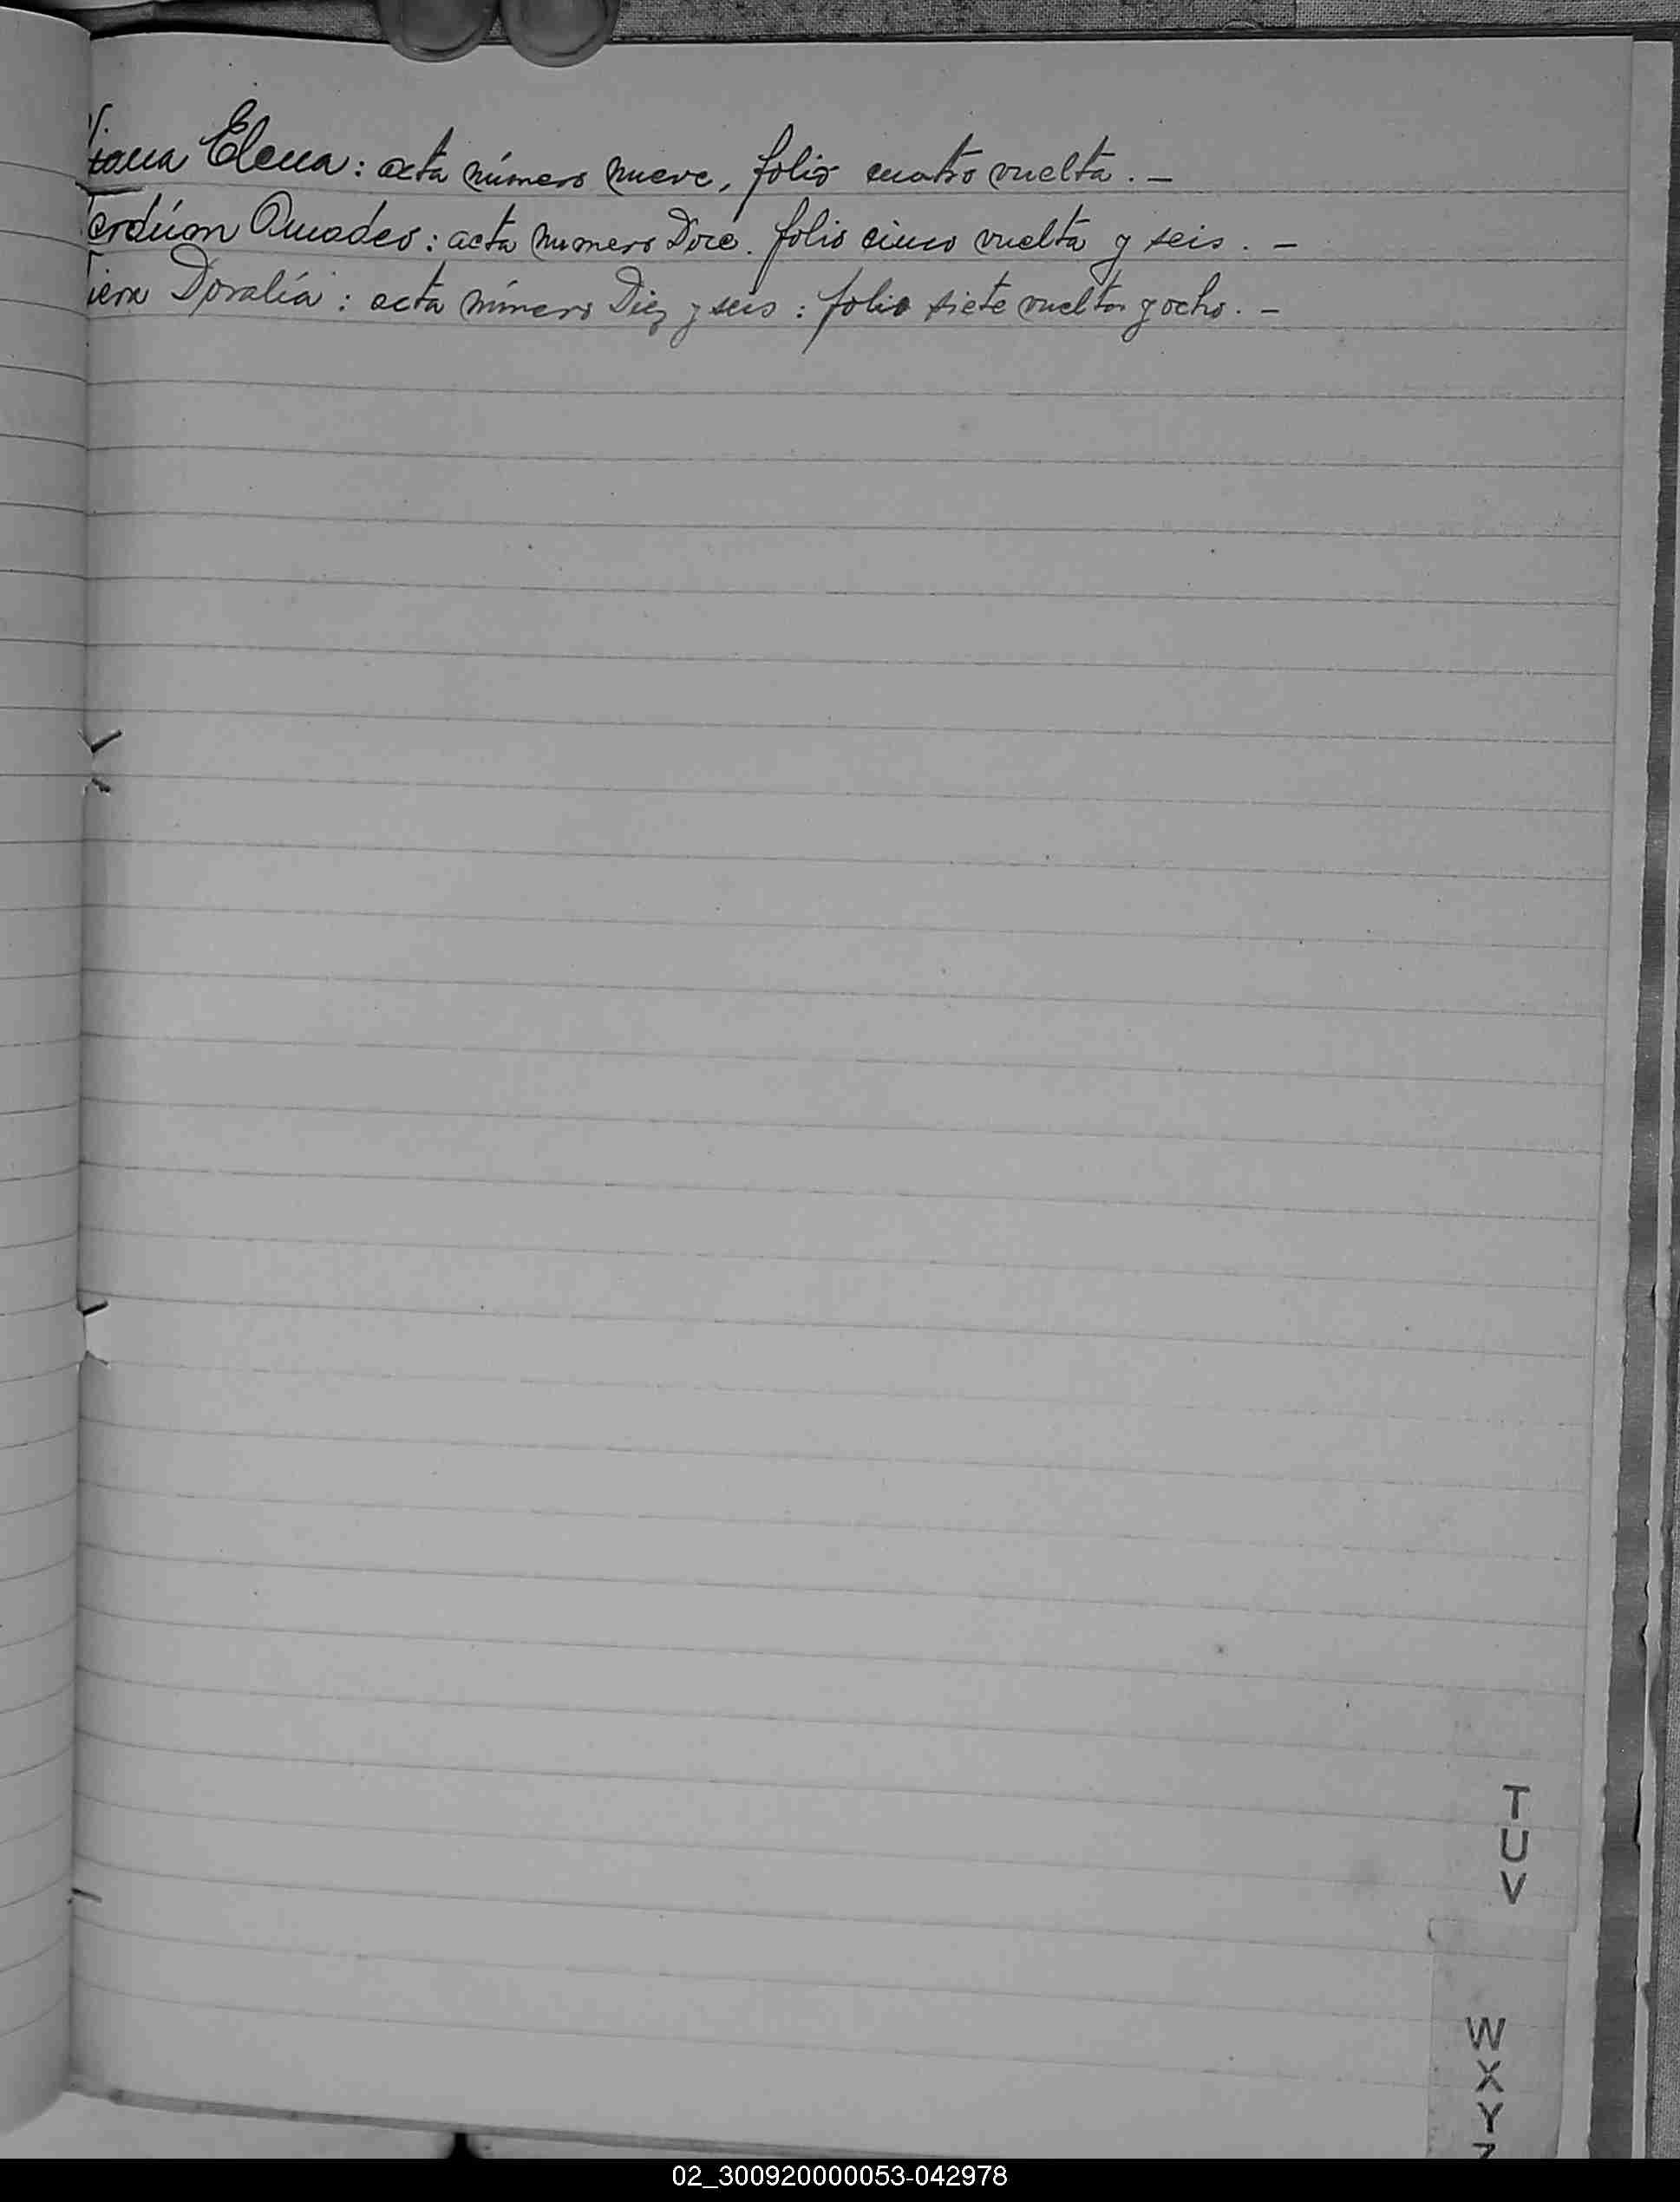 Viana Elena: acta número nueve, folio cuatro vuelta. –
Verdúan Amadeo: acta numero Doce. folio cinco vuelta y seis. –
iera Doralía: acta número Diez y seis: folio siete vuelta y ocho. –
T
U
V
W
X
Y
Z
02_300920000053-042978